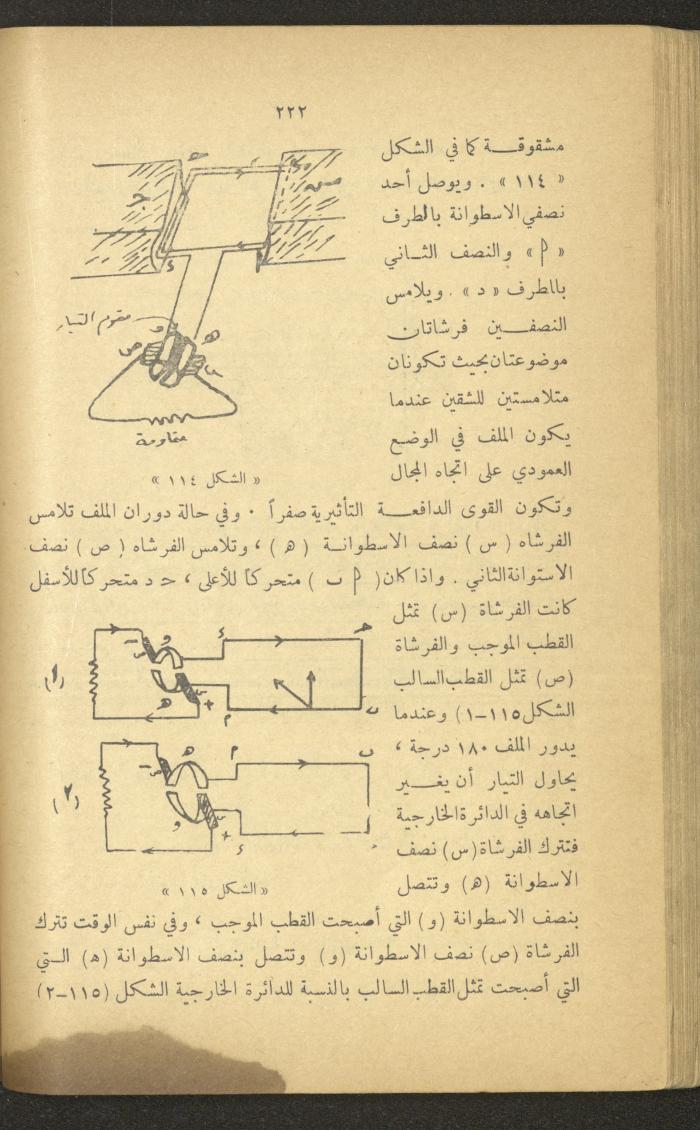 ٢٢٢
مشقوقـة كما في الشكل
« ١١٤ » . ويوصل أحد
نصفي الاسطوانة بالطرف
« م » والنصف الثــاني
بالطرف « د » . ويلامس
النصفــين فرشاتان
موضوعتان بحيث تكونان
متلامستين للشقين عندما
يكون الملف في الوضـع
العمودي على اتجاه المجال
مقوم التيار
و
ه
ص
مقاومة
« الشكل ١١٤ »
وتكون القوى الدافعــة التأثيرية صفراً ٠ وفي حالة دوران الملف تلامس
الفرشاه ( س ) نصف الاسطوانـة ( ه ) ، وتلامس الفرشاه ( ص ) نصف
الاستوانة الثاني . واذا كان ( م ب ) متحركاً للأعلى ، ح د متحركاً للأسفل
كانت الفرشاة (س) تمثل
القطب الموجب والفرشاة
(ص) تمثل القطب السالب
الشكل ١١٥-١) وعندما
يدور الملف ١٨٠ درجة ،
يحاول التيار أن يغــير
اتجاهه في الدائرة الخارجية
فتترك الفرشاة (س) نصف
الاسطوانة (ه) وتتصل
(١)
و
ص
-
ه
س
+
د
م
ح
ب
(٢)
ه
ص
-
و
س
+
م
د
ب
« الشكل ١١٥ »
بنصف الاسطوانة (و) التي أصبحت القطب الموجب ، وفي نفس الوقت تترك
الفرشاة (ص) نصف الاسطوانة (و) وتتصل بنصف الاسطوانة (ه) الــتي
التي أصبحت تمثل القطب السالب بالنسبة للدائرة الخارجية الشكل (١١٥-٢)